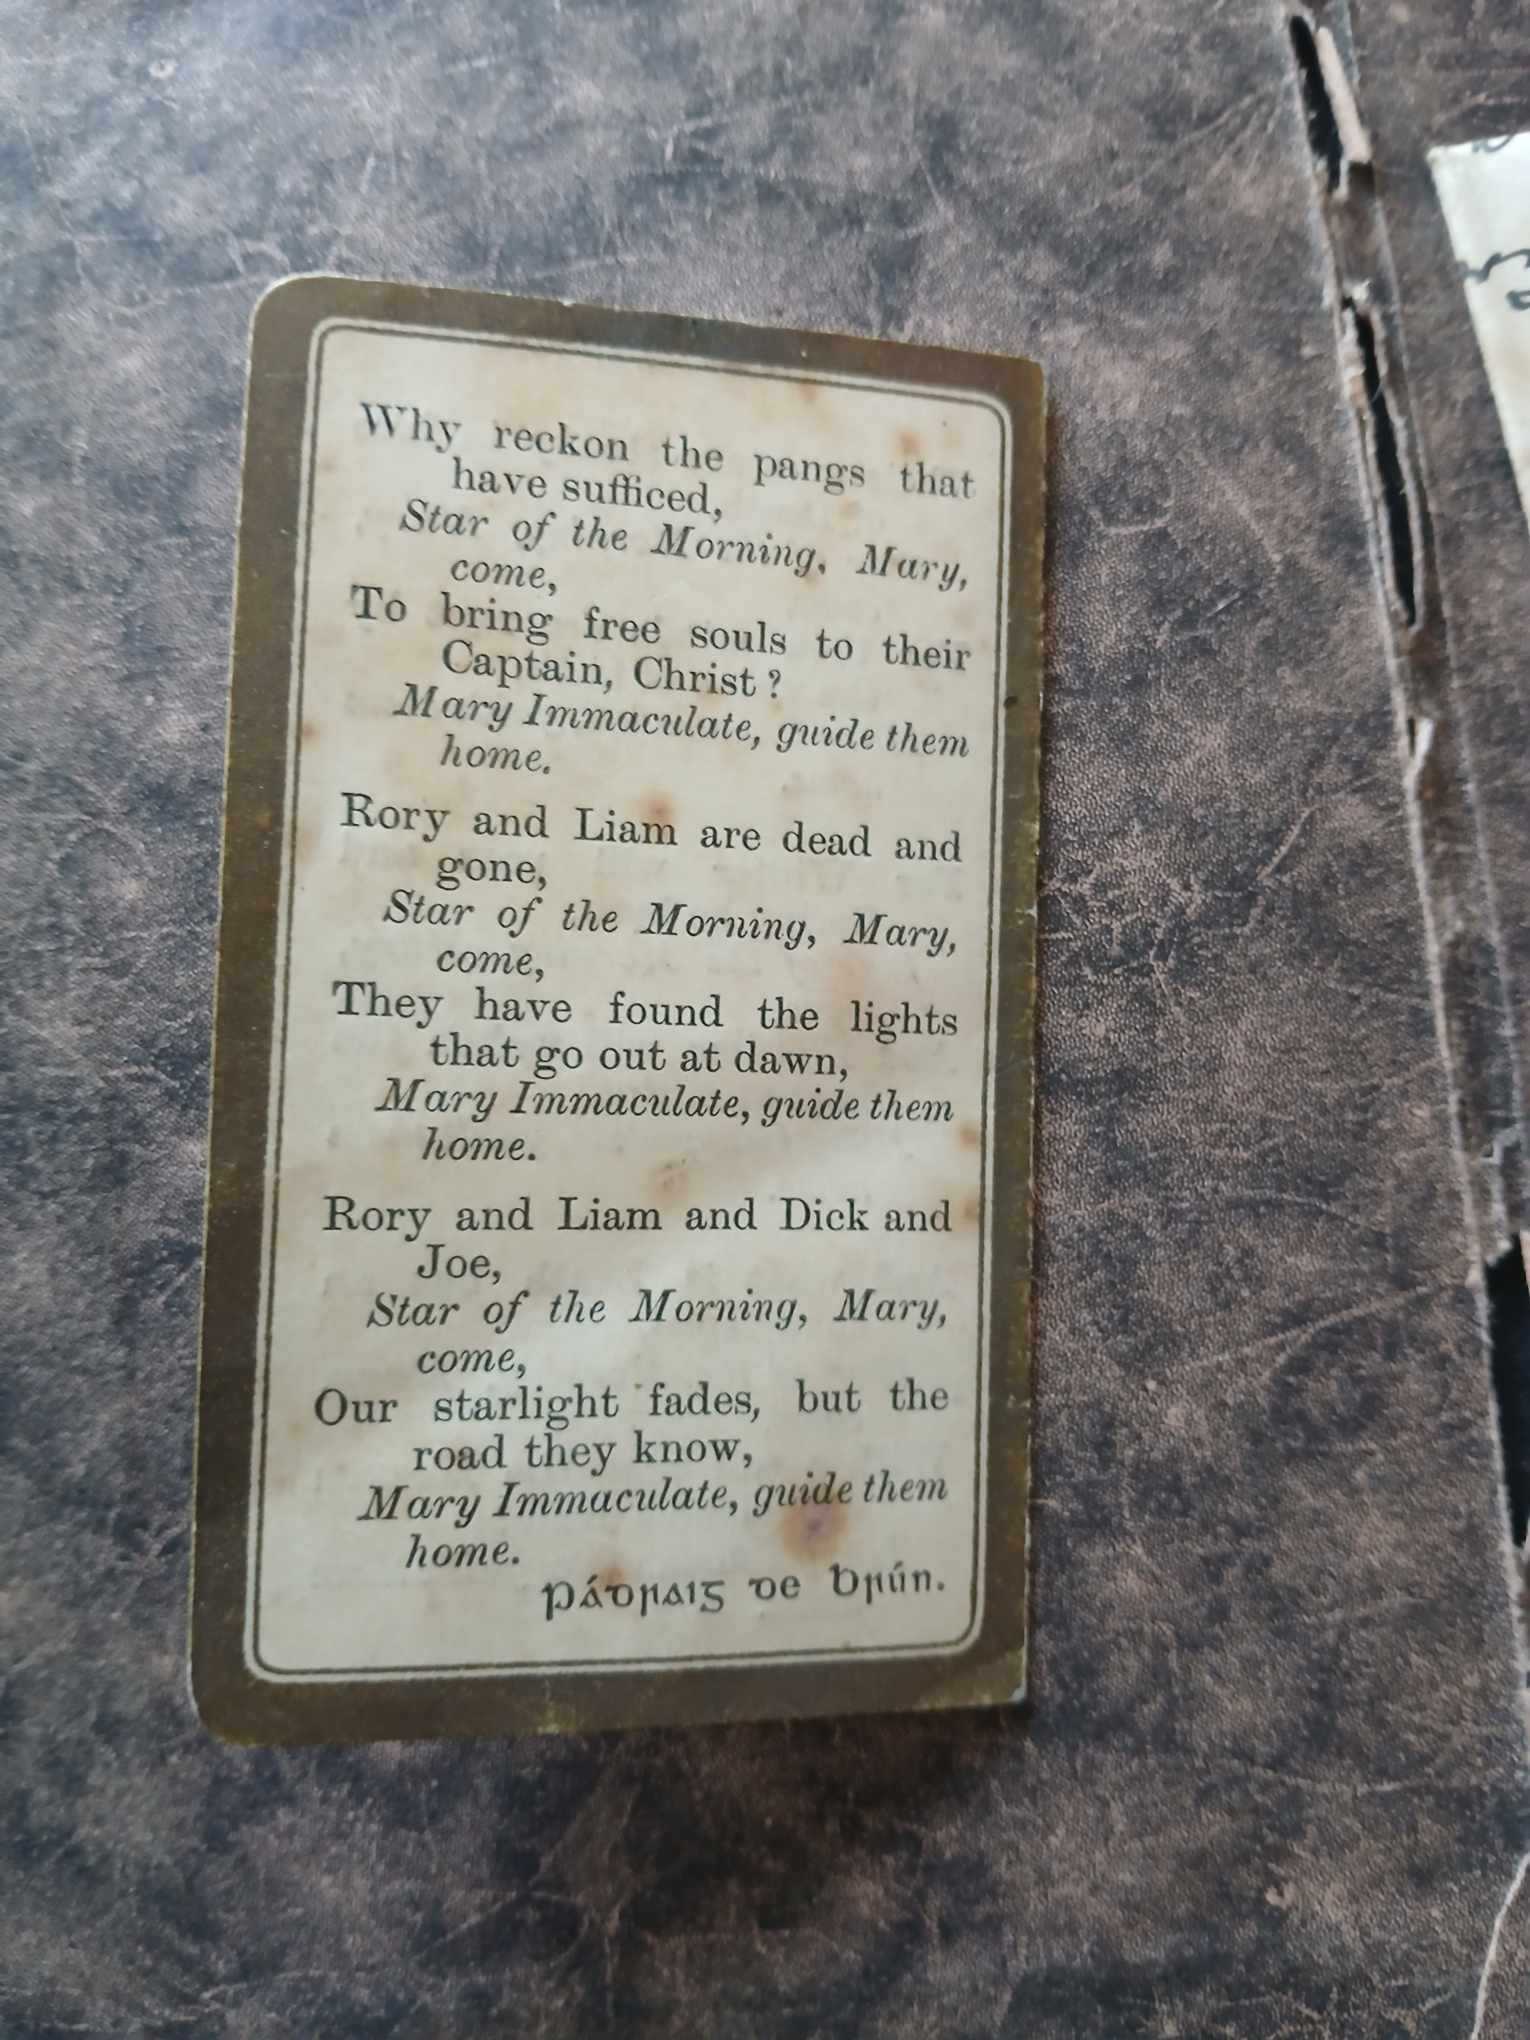 Why reckon the pangs that
have sufficed,
Star of the Morning, Mary,
come,
To bring free souls to their
Captain, Christ ?
Mary Immaculate, guide them
home.
Rory and Liam are dead and
gone,
Star of the Morning, Mary,
come,
They have found the lights
that go out at dawn,
Mary Immaculate, guide them
home.
Rory and Liam and Dick and
Joe,
Star of the Morning, Mary,
come,
Our starlight fades, but the
road they know,
Mary Immaculate, guide them
home.
Pádraig de Brún.